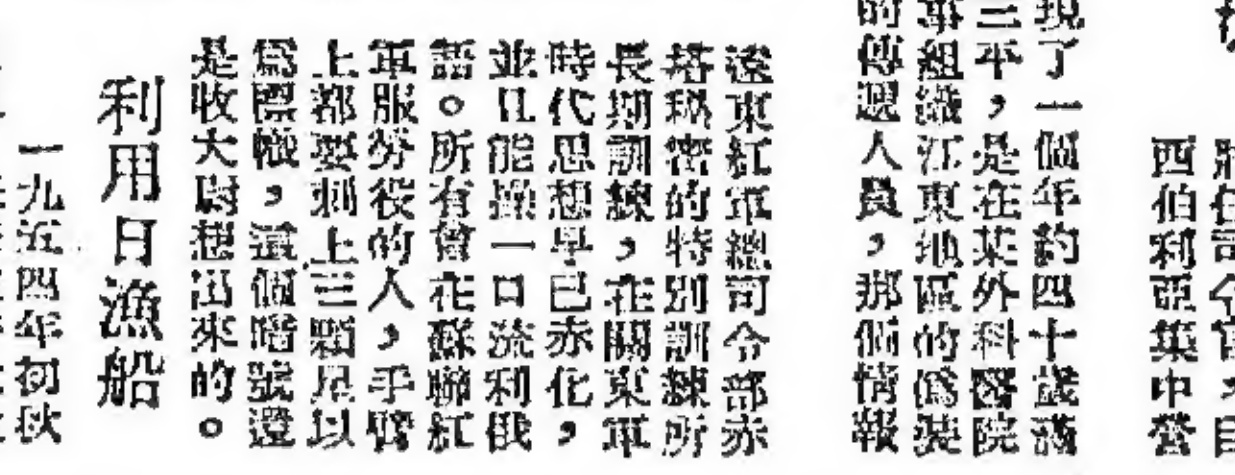 西伯利亞集中營
現了一個年約四十歲滿
三平,是在某外科醫院
事組織江東地區的僞裝
的傳遞人員,那個情報
遠東紅軍總司令部赤
塔秘密的特別訓練所
長期訓練,在關東軍
時代思想早已赤化,
並且能操一口流利俄
語。所有曾在蘇聯紅
軍服勞役的人,手臂
上都要刺上三顆星以
爲標幟,這個暗號還
是收大尉想出來的。
利用日漁船
一九五四年初秋